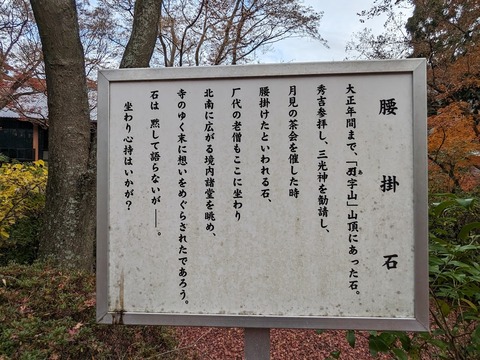 腰掛石
大正年間まで、「刄字山」山頂にあった石。
秀吉参拝し、三光神を勧請し、
月見の茶会を催した時
腰掛けたといわれる石、
歴代の老僧もここに坐わり
北南に広がる境内諸堂を眺め、
寺のゆく末に想いをめぐらされたであろう。
石は 黙して語らないが──。
坐わり心持はいかが？